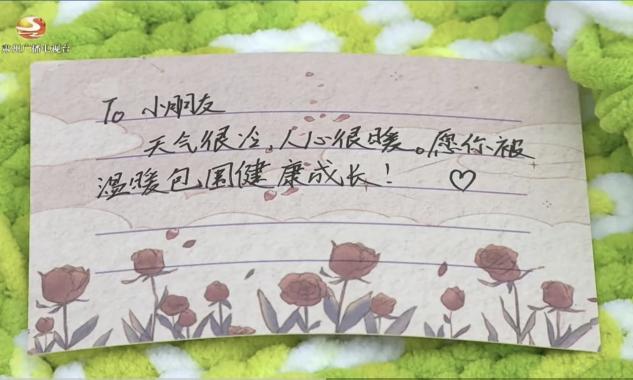 肃州广播电视台
To 小朋友
天气很冷。人心很暖。愿你被
温暖包围健康成长！♡